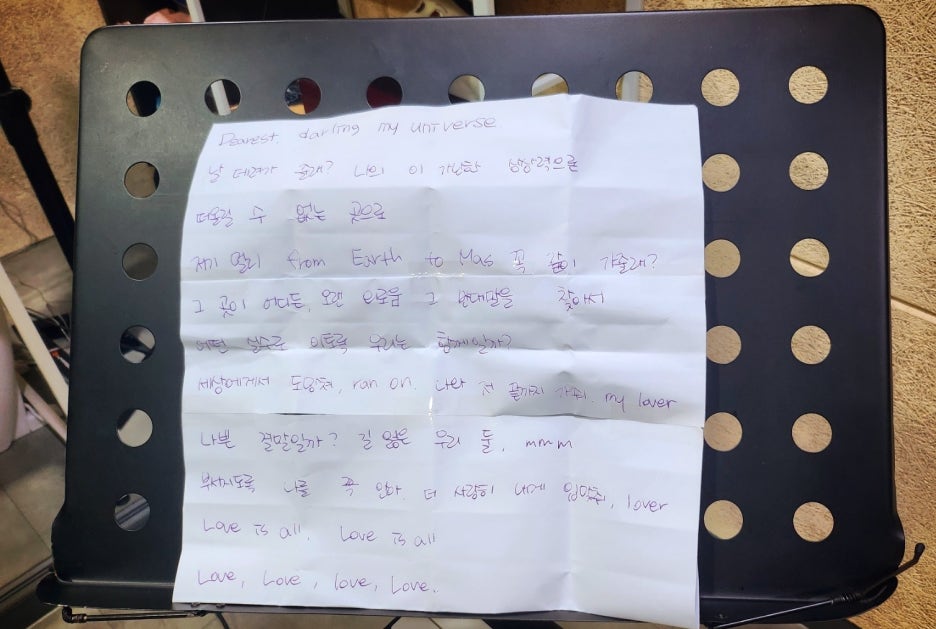 Dearest, darling my universe
날 데려가 줄래? 나의 이 가난한 상상력으로
떠올릴 수 없는 곳으로
저기 멀리 from Earth to Mas 꼭 같이 가줄래?
그 곳이 어디든, 오랜 외로움 그 반대말을 찾아서
어떤 실수로 이토록 우리는 함께일까?
세상에게서 도망쳐, ran on. 나와 저 끝까지 가줘. my lover
나쁜 결말일까? 길 잃은 우리 둘, mmm
부서지도록 나를 꼭 안아, 더 사랑히 내게 입맞춰, lover
Love is all. Love is all
Love, Love, love, Love.